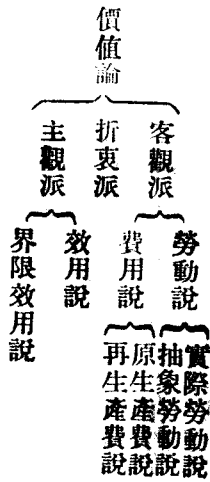 價值論
客觀派
折衷派
主觀派
勞動說
費用說
效用說
界限效用說
實際勞動說
抽象勞動說
原生產費說
再生產費說